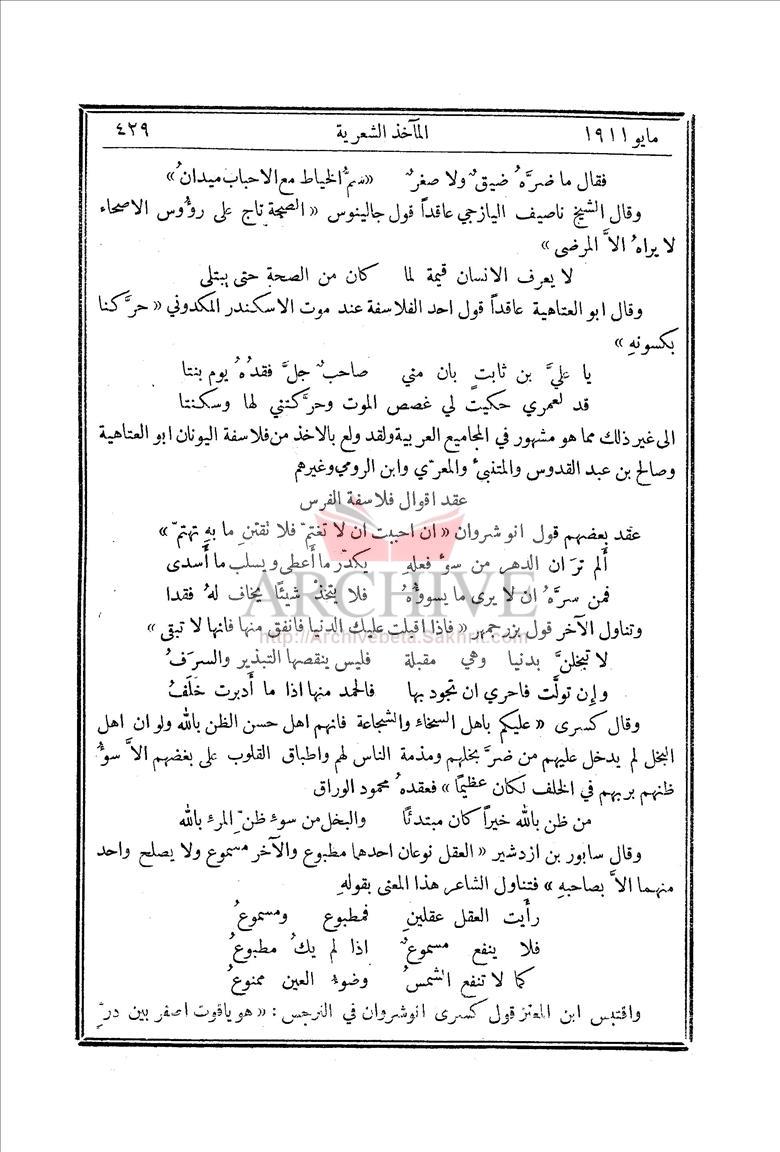 مايو ١٩١١ المآخذ الشعرية ٤٢٩
فقال ما ضرَّهُ ضيقٌ ولا صغرٌ «سمُّ الخياط مع الاحباب ميدانُ»
وقال الشيخ ناصيف اليازجي عاقداً قول جالينوس «الصحة تاج على رؤوس الاصحاء
لا يراهُ الاَّ المرضى»
لا يعرف الانسان قيمة لما كان من الصحة حتى يبتلى
وقال ابو العتاهية عاقداً قول احد الفلاسفة عند موت الاسكندر المكدوني «حرَّكنا
بكسونهِ»
يا عليَّ بن ثابتٍ بان مني صاحبٌ جلَّ فقدُهُ يوم بنتا
قد لعمري حكيت لي غصص الموت وحرَّكتني لها وسكنتا
الى غير ذلك مما هو مشهور في المجاميع العربية ولقد ولع بالاخذ من فلاسفة اليونان ابو العتاهية
وصالح بن عبد القدوس والمتنبئ والمعرّي وابن الرومي وغيرهم
عقد اقوال فلاسفة الفرس
عقد بعضهم قول انوشروان «ان احببت ان لا تغتمّ فلا تقتنِ ما بهِ تهتمّ»
ألم ترَ ان الدهر من سوءِ فعلهِ يكدّر ما أعطى ويسلب ما أسدى
فمن سرَّهُ ان لا يرى ما يسوؤُهُ فلا يتخذْ شيئًا يخاف لهُ فقدا
ARCHIVE
http://Archivebeta.Sakhrit.com
وتناول الآخر قول بزرجمهر «فاذا اقبلت عليك الدنيا فانفق منها فانها لا تبقى»
لا تبخلنَّ بدنيا وهي مقبلة فليس ينقصها التبذير والسرَفُ
وإن تولَّت فاحرى ان تجود بها فالحمد منها اذا ما أدبرت خَلَفُ
وقال كسرى «عليكم باهل السخاء والشجاعة فانهم اهل حسن الظن بالله ولو ان اهل
البخل لم يدخل عليهم من ضرّ بخلهم ومذمة الناس لهم واطباق القلوب على بغضهم الاَّ سوءُ
ظنهم بربهم في الخلف لكان عظيمًا» فعقدهُ محمود الوراق
من ظن بالله خيراً كان مبتدئًا والبخل من سوءِ ظنِّ المرءِ بالله
وقال سابور بن ازدشير «العقل نوعان احدهما مطبوع والآخر مسموع ولا يصلح واحد
منهما الاَّ بصاحبهِ» فتناول الشاعر هذا المعنى بقولهِ
رأَيت العقل عقلينِ فمطبوع ومسموعُ
فلا ينفع مسموعٌ اذا لم يكُ مطبوعُ
كما لا تنفع الشمسُ وضوءُ العين ممنوعُ
واقتبس ابن المعتز قول كسرى انوشروان في النرجس: «هو ياقوت اصفر بين درّ